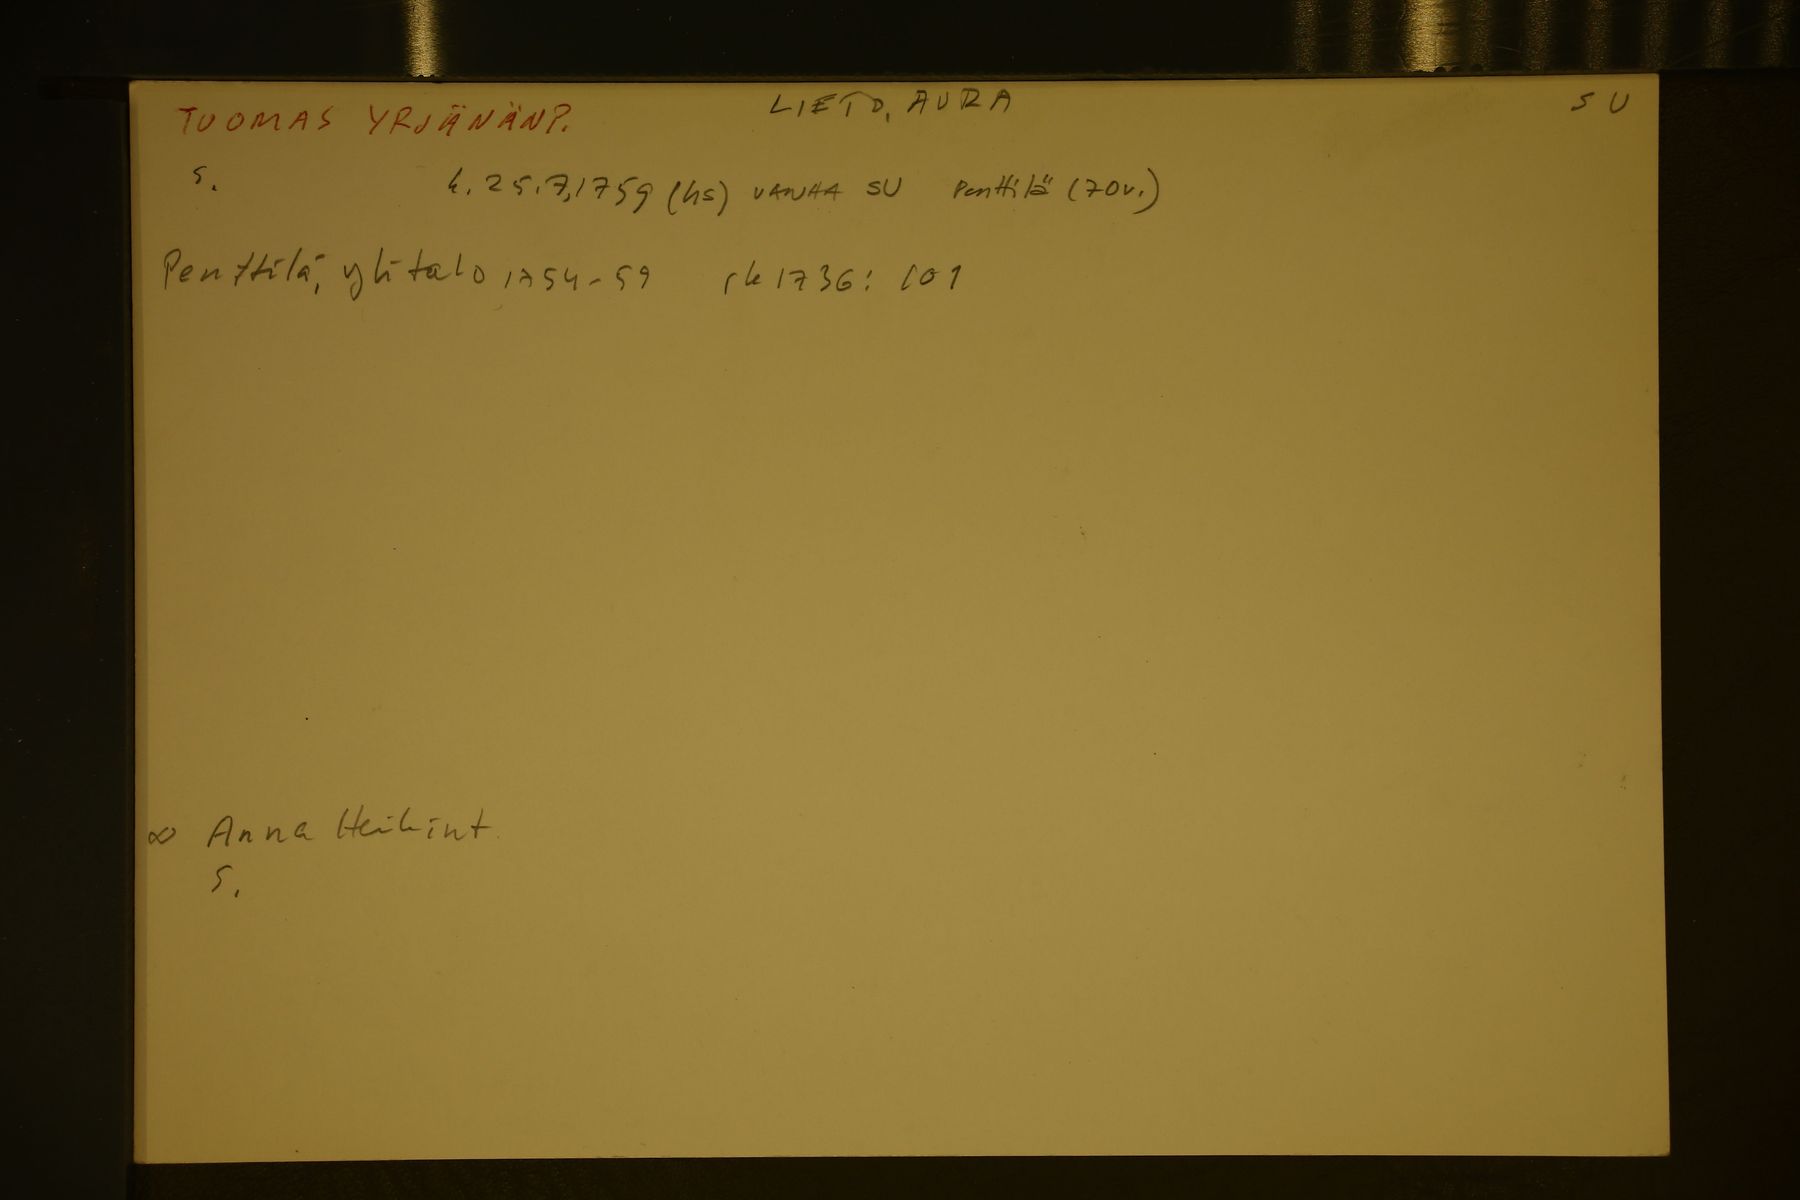 TUOMAS YRJÄNÄNP. LIETO, AURA SU
s. k. 25.7.1759 (hs) VANHA SU Penttilä (70v.)
Penttilä, ylitalo 1754-59 rk 1736: 101
∞ Anna Heikint.
s.